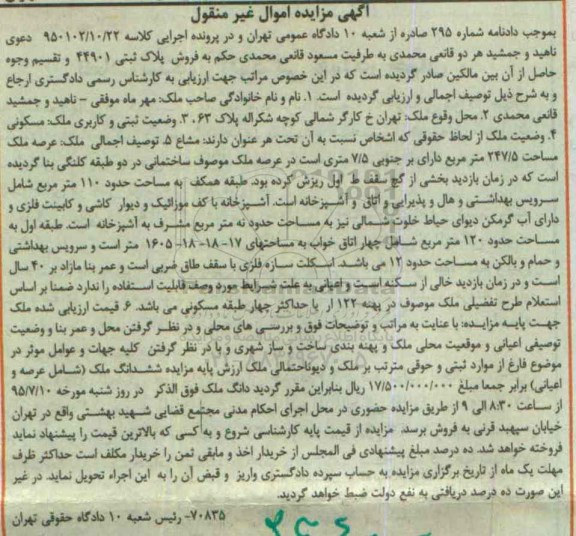 آگهی مزایده اموال غیر منقول
بموجب دادنامه شماره ۲۹۵ صادره از شعبه ۱۰ دادگاه عمومی تهران و در پرونده اجرایی کلاسه ۹۵۰۱۰۲/۱۰/۲۲ دعوی
ناهید و جمشید هر دو قانعی محمدی به طرفیت مسعود قانعی محمدی حکم به فروش پلاک ثبتی ۴۴۹۰۱ و تقسیم وجوه
حاصل از آن بین مالکین صادر گردیده است که در این خصوص مراتب جهت ارزیابی به کارشناس رسمی دادگستری ارجاع
و به شرح ذیل توصیف اجمالی و ارزیابی گردیده است. ۱. نام و نام خانوادگی صاحب ملک: مهر ماه موفقی – ناهید و جمشید
قانعی محمدی ۲. محل وقوع ملک: تهران خ کارگر شمالی کوچه شکراله پلاک ۶۳. ۳. وضعیت ثبتی و کاربری ملک: مسکونی
۴. وضعیت ملک از لحاظ حقوقی که اشخاص نسبت به آن تحت هر عنوان دارند: مشاع ۵. توصیف اجمالی ملک: عرصه ملک
مساحت ۲۴۷/۵ متر مربع دارای بر جنوبی ۷/۵ متری است در عرصه ملک موصوف ساختمانی در دو طبقه کلنگی بنا گردیده
است که در زمان بازدید بخشی از گچ سقف ط اول ریزش کرده بود. طبقه همکف به مساحت حدود ۱۱۰ متر مربع شامل
سرویس بهداشتی و هال و پذیرایی و اتاق و آشپزخانه است. آشپزخانه با کف موزائیک و دیوار کاشی و کابینت فلزی و
دارای آب گرمکن دیوای حیاط خلوت شمالی نیز به مساحت حدود نه متر مربع مشرف به آشپزخانه است. طبقه اول به
مساحت حدود ۱۲۰ متر مربع شامل چهار اتاق خواب به مساحتهای ۱۷-۱۸-۱۸-۱۶۰۵ متر است و سرویس بهداشتی
و حمام و بالکن به مساحت حدود ۱۲ می باشد. اسکلت سازه فلزی با سقف طاق ضربی است و عمر بنا مازاد بر ۴۰ سال
است و در زمان بازدید خالی از سکنه است و اعیانی به علت شرایط مورد وصف قابلیت استفاده را ندارد ضمنا بر اساس
استعلام طرح تفضیلی ملک موصوف در پهنه ۱۲۲ار با حداکثر چهار طبقه مسکونی می باشد. ۶. قیمت ارزیابی شده ملک
جهت پایه مزایده: با عنایت به مراتب و توضیحات فوق و بررسی های محلی و در نظر گرفتن محل و عمر بنا و وضعیت
توصیفی اعیانی و موقعیت محلی ملک و پهنه بندی ساخت و ساز شهری و با در نظر گرفتن کلیه جهات و عوامل موثر در
موضوع فارغ از موارد ثبتی و حوقی مترتب بر ملک و دیوناحتمالی ملک ارزش پایه مزایده ششدانگ ملک (شامل عرصه و
اعیانی) برابر جمعا مبلغ ۱۷/۵۰۰/۰۰۰/۰۰۰ ریال بنابراین مقرر گردید دانگ ملک فوق الذکر در روز شنبه مورخه ۹۵/۷/۱۰
از ساعت ۸:۳۰ الی ۹ از طریق مزایده حضوری در محل اجرای احکام مدنی مجتمع قضایی شهید بهشتی واقع در تهران
خیابان سپهبد قرنی به فروش برسد. مزایده از قیمت پایه کارشناسی شروع و به کسی که بالاترین قیمت را پیشنهاد نماید
فروخته خواهد شد. ده درصد مبلغ پیشنهادی فی المجلس از خریدار اخذ و مابقی ثمن را خریدار مکلف است حداکثر ظرف
مهلت یک ماه از تاریخ برگزاری مزایده به حساب سپرده دادگستری واریز و قبض آن را به این اجراء تحویل نماید. در غیر
این صورت ده درصد دریافتی به نفع دولت ضبط خواهد گردید.
۷۰۸۳۵- رئیس شعبه ۱۰ دادگاه حقوقی تهران